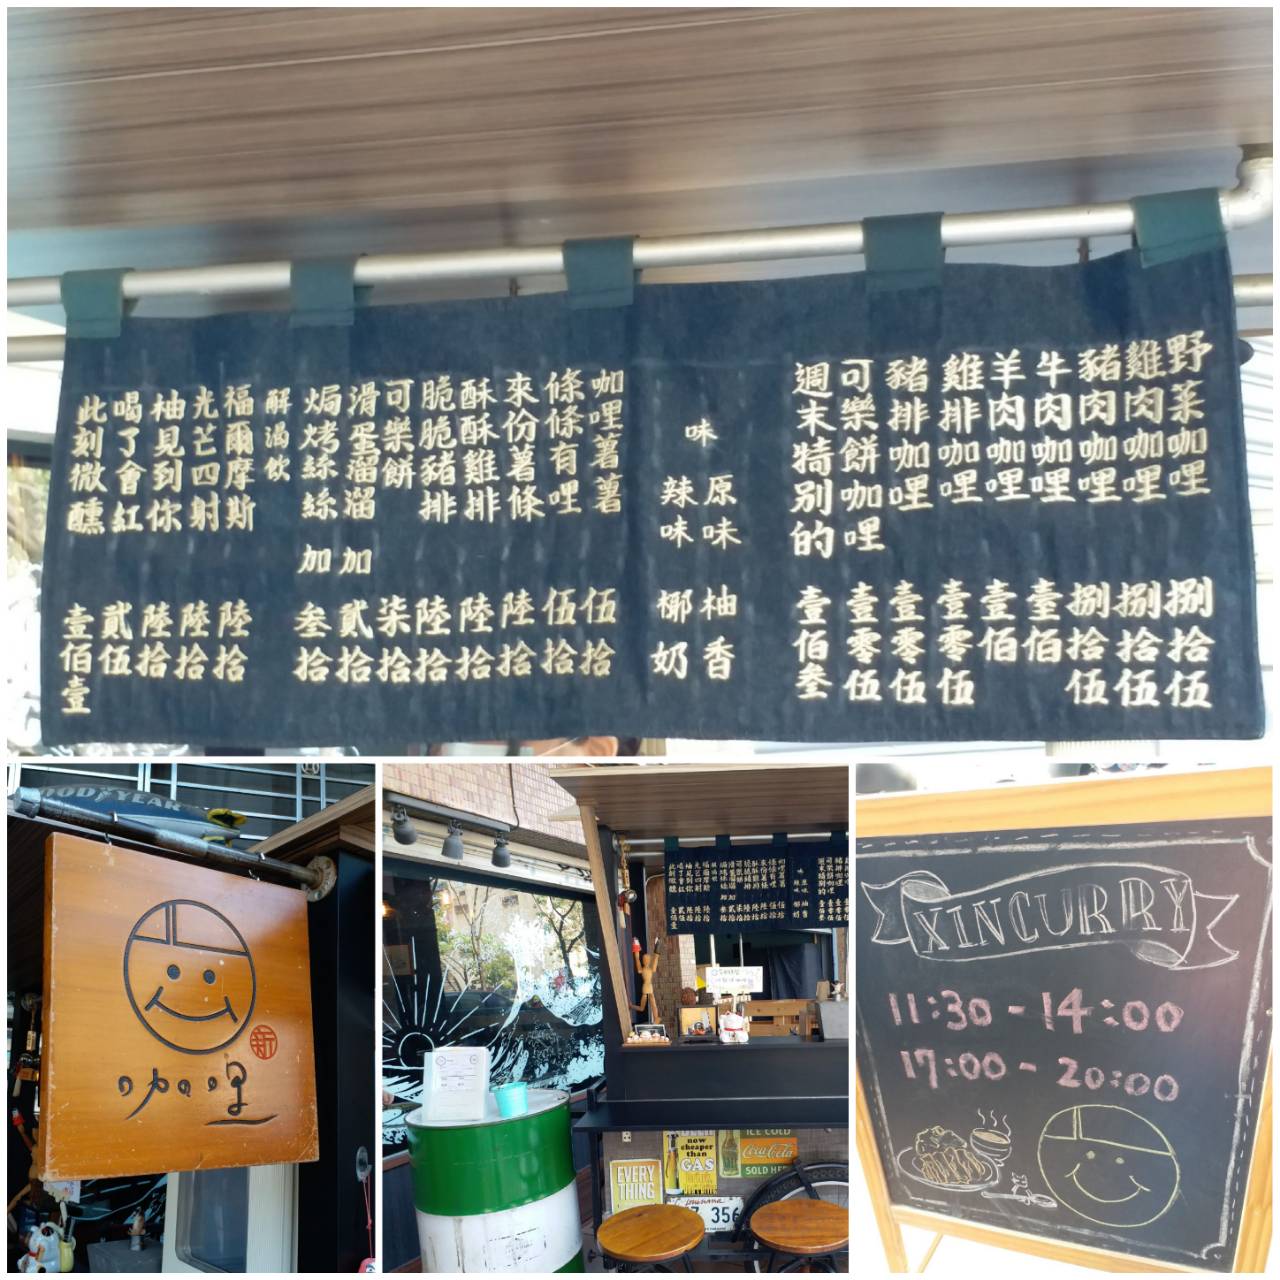 野菜咖哩 捌拾伍
雞肉咖哩 捌拾伍
豬肉咖哩 捌拾伍
牛肉咖哩 壹佰
羊肉咖哩 壹佰
雞排咖哩 壹零伍
豬排咖哩 壹零伍
可樂餅咖哩 壹零伍
週末特別的 壹佰叁
味
原味 柚香
辣味 椰奶
咖哩薯薯 伍拾
條條有哩 伍拾
來份薯條 陸拾
酥酥雞排 陸拾
脆脆豬排 陸拾
可樂餅 柒拾
滑蛋溜溜 加 貳拾
焗烤絲絲 加 叁拾
解渴飲
福爾摩斯 陸拾
光芒四射 陸拾
柚見到你 陸拾
喝了會紅 貳伍
此刻微醺 壹佰壹
GOODYEAR
新
咖哩
now
cheaper
than
GAS
ICE COLD
Coca-Cola
SOLD HERE
EVERY
THING
Louisiana
356
XINCURRY
11:30 - 14:00
17:00 - 20:00